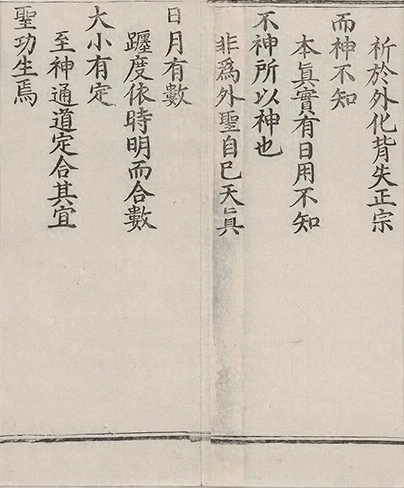 祈於外化背失正宗
而神不知
本眞實有日用不知
不神所以神也
非爲外聖自己天眞
日月有數
躔度依時明而合數
大小有定
至神通道定合其宜
聖功生焉